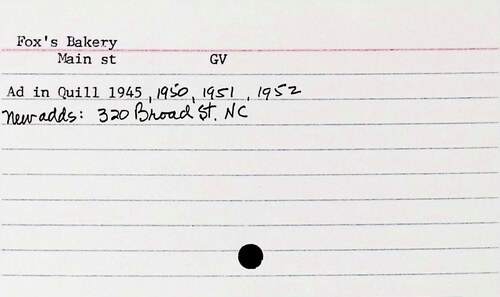 Fox's Bakery
Main st GV
Ad in Quill 1945, 1950, 1951, 1952
New adds: 320 Broad St. NC